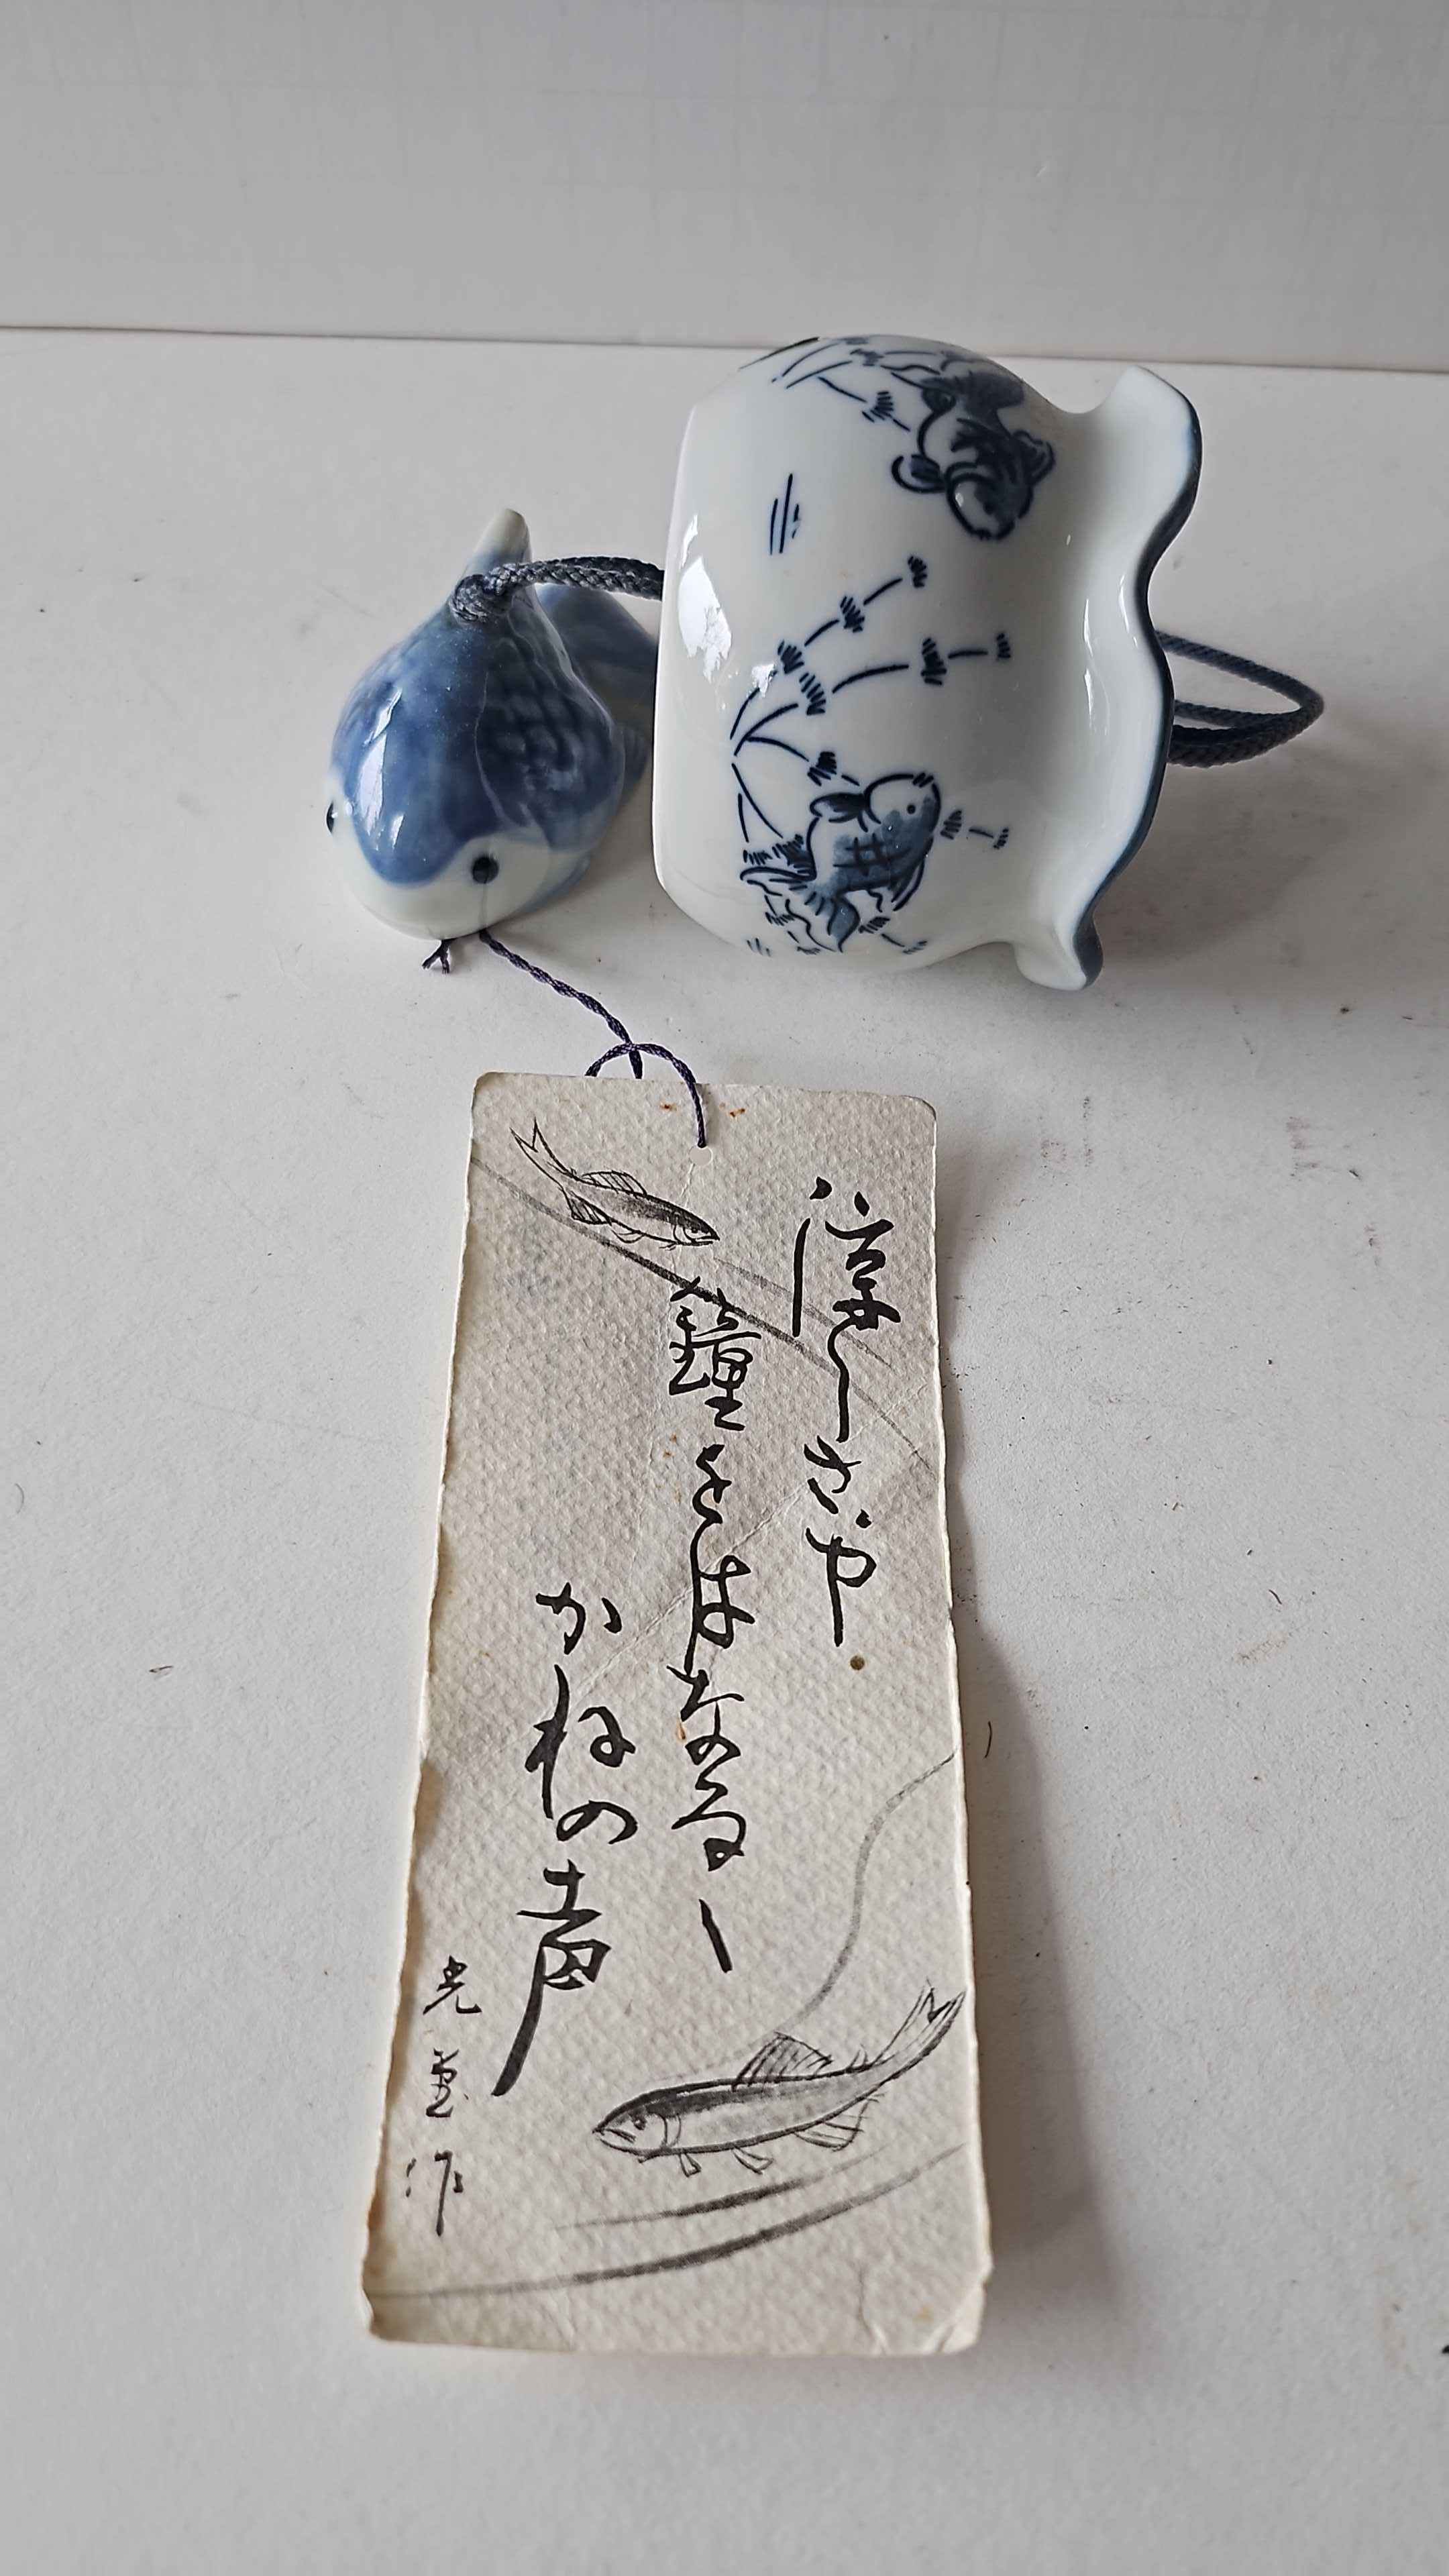 涼しさや
鐘をはなるゝ
かねの声
光堂作